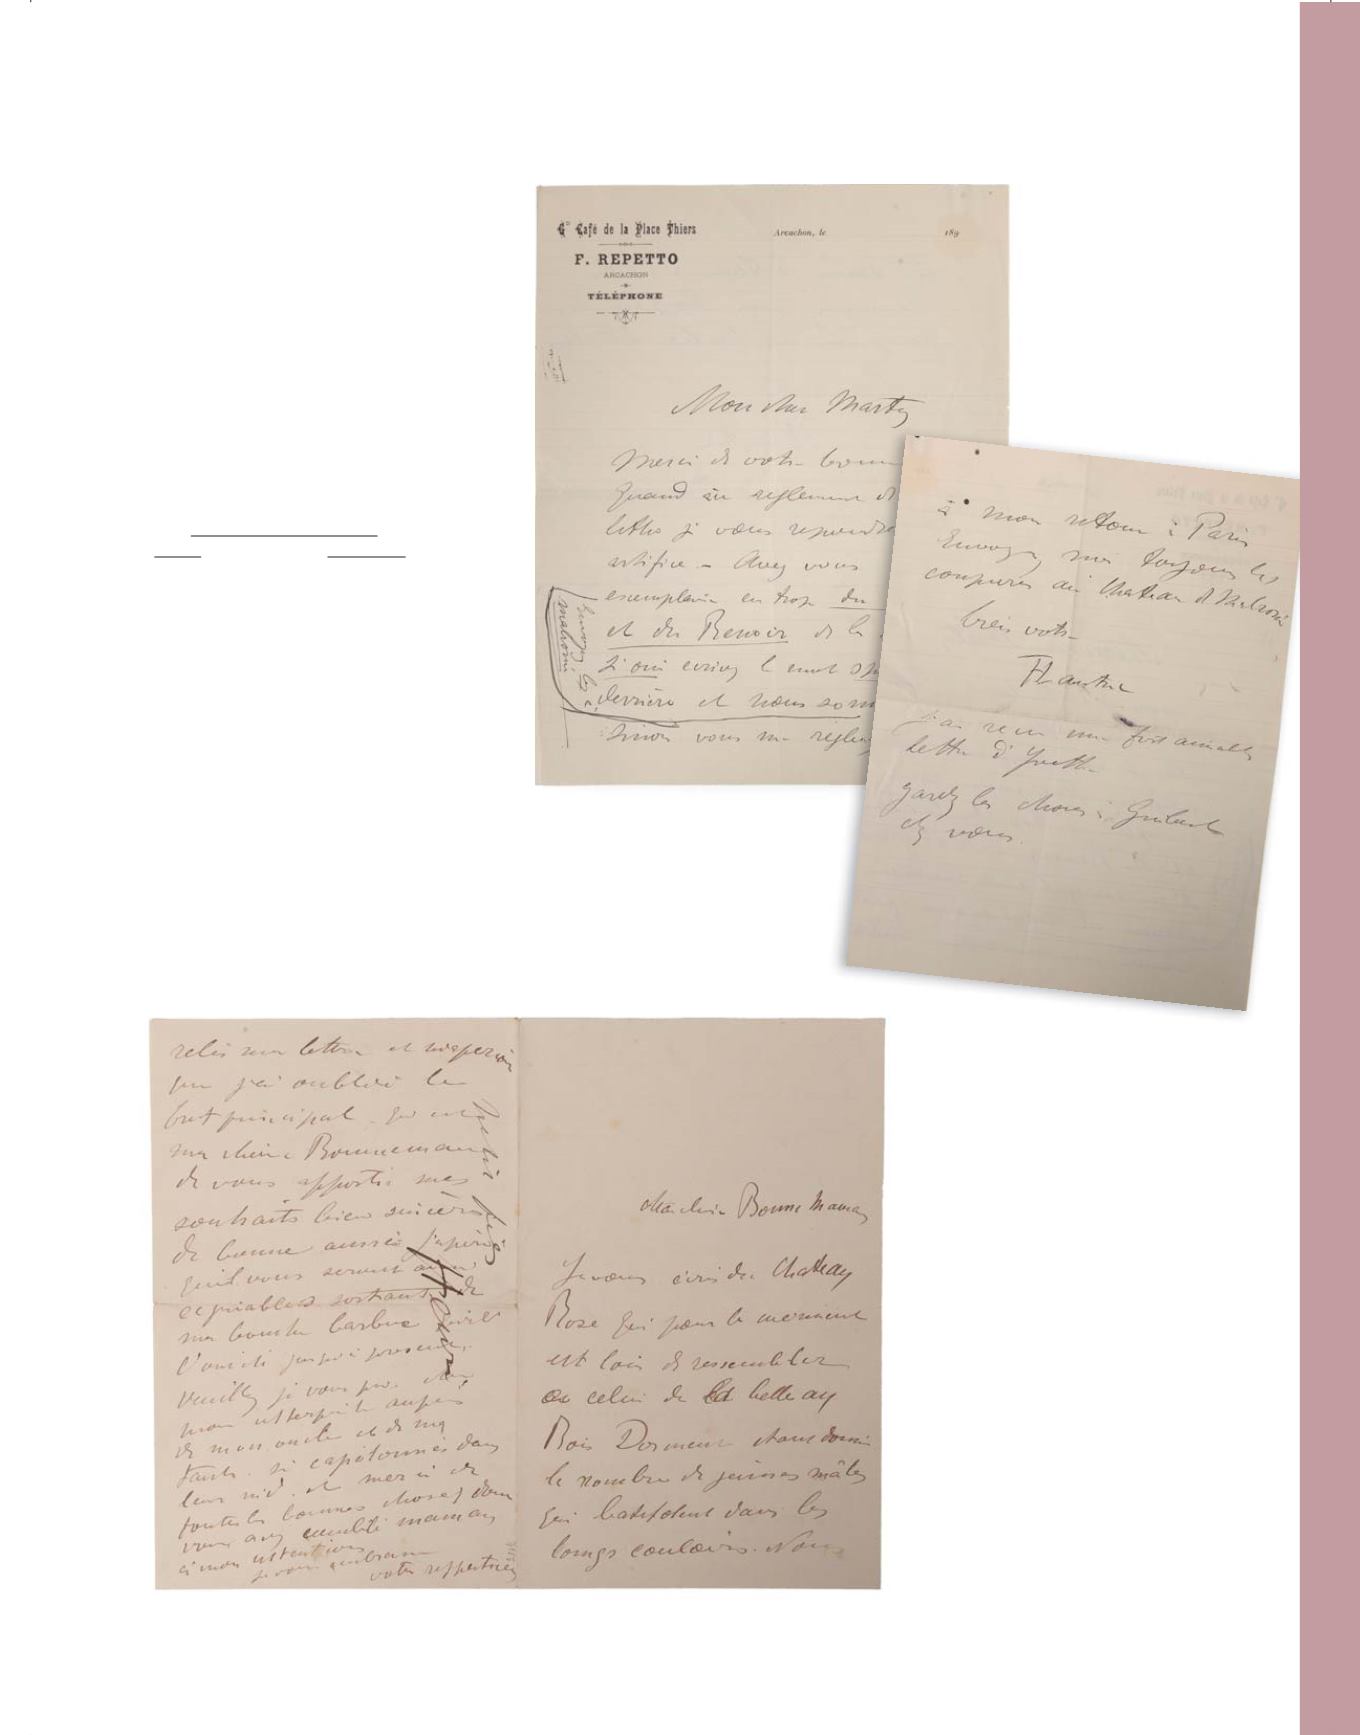 Gd Café de la Place Thiers
F. REPETTO
ARCACHON
TÉLÉPHONE
Arcachon, le 189
Mon cher Marty
Merci de votre bonne
Quand au reglement de
litho je vous repondrai
artifice - Avez vous
exemplaire en trop du
et du Renoir de la
si oui ecrivez le mot
derrière et nous som
sinon vous me reglez
Envoyez les à
Malromé
à mon retour à Paris
Envoyez moi toujours les
coupures au Chateau de Malromé
bien votre
HLautrec
j'ai reçu une fort aimable
lettre d'Yvette
gardez les choses à Guibert
chez vous.
relis ma lettre et m'aperçois
que j'ai oublié le
but principal. qui est
ma chère Bonnemaman
de vous apporter mes
souhaits bien sincères
de bonne année j'espère
qu'il vous seront aussi
agréables sortant de
ma bouche barbue qu'ils
l'ont été jusqu'à present,
veuillez je vous prie être
mon interprète auprès
de mon oncle et de ma
tante si capitonnés dans
leur nid. et merci de
toutes les bonnes choses dont
vous avez comblé maman
à mon intention
je vous embrasse
votre respectueux
petit fils
Henri
Ma chère Bonne Maman
Je vous écris du Chateau
Rose qui pour le moment
est loin de ressembler
à celui de la belle au
Bois Dormant étant donné
le nombre de jeunes mâles
qui batifolent dans les
longs couloirs. Nous